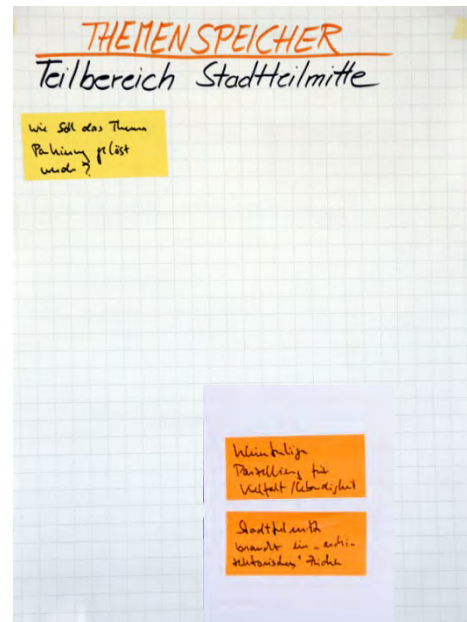 THEMENSPEICHER
Teilbereich Stadtteilmitte
Wie soll das Thema
Parkierung gelöst
werden?
Kleinteilige
Parzellierung für
Vielfalt / Lebendigkeit
Stadtteilmitte
braucht ein "archi-
tektonisches" Zeichen